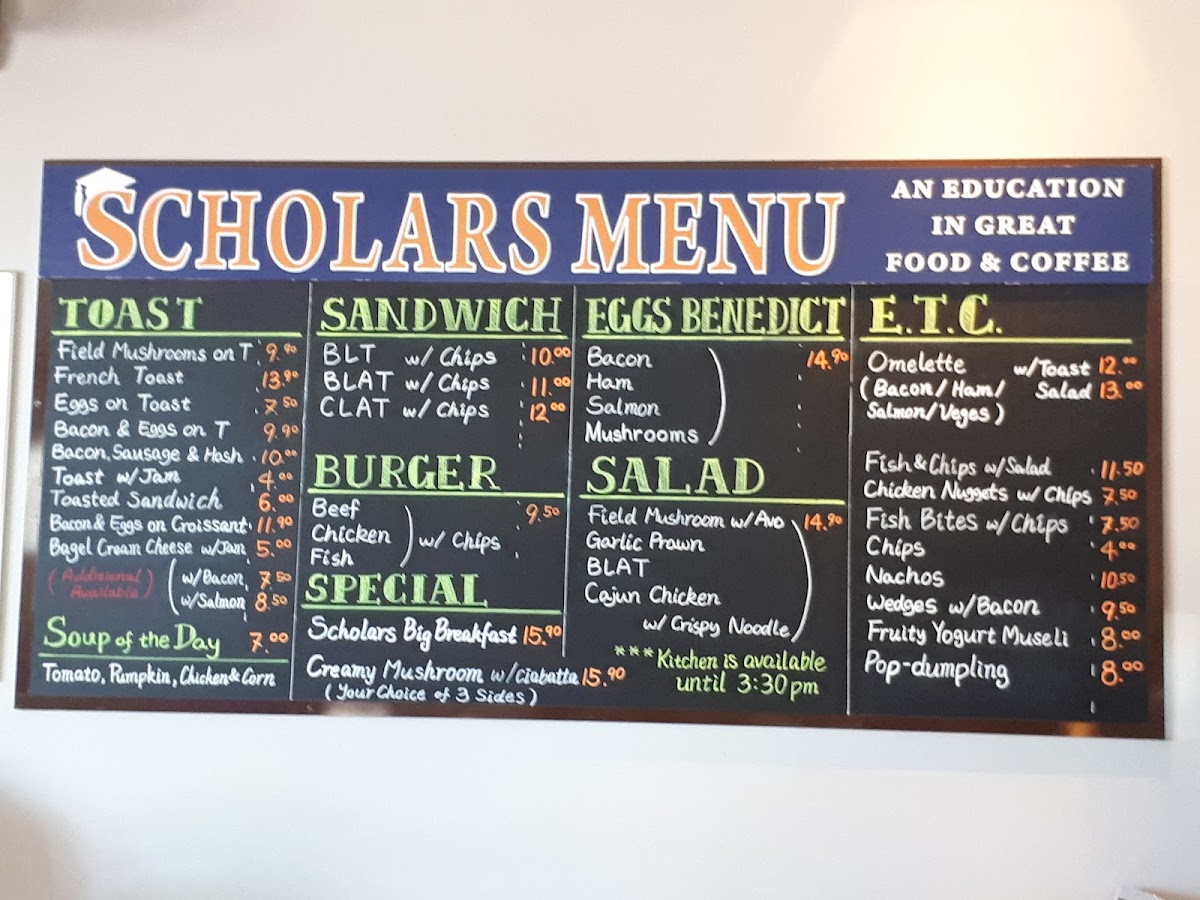 SCHOLARS MENU
AN EDUCATION
IN GREAT
FOOD & COFFEE
TOAST
Field Mushrooms on T 9.90
French Toast 13.90
Eggs on Toast 7.50
Bacon & Eggs on T 9.90
Bacon, Sausage & Hash 10.00
Toast w/Jam 4.00
Toasted Sandwich 6.00
Bacon & Eggs on Croissant 11.90
Bagel Cream Cheese w/Jam 5.00
(Additional Available)
w/Bacon 7.50
w/Salmon 8.50
Soup of the Day 7.00
Tomato, Pumpkin, Chicken & Corn
SANDWICH
BLT w/ Chips 10.00
BLAT w/ Chips 11.00
CLAT w/ Chips 12.00
BURGER
Beef 9.50
Chicken w/ Chips
Fish
SPECIAL
Scholars Big Breakfast 15.90
Creamy Mushroom w/Ciabatta 15.90
(Your Choice of 3 Sides)
EGGS BENEDICT
Bacon 14.90
Ham
Salmon
Mushrooms
SALAD
Field Mushroom w/ Avo 14.90
Garlic Prawn
BLAT
Cajun Chicken
w/ Crispy Noodle
***Kitchen is available
until 3:30pm
E.T.C.
Omelette w/Toast 12.00
(Bacon/Ham/ Salad 13.00
Salmon/Veges)
Fish & Chips w/Salad 11.50
Chicken Nuggets w/ Chips 7.50
Fish Bites w/Chips 7.50
Chips 4.00
Nachos 10.50
Wedges w/Bacon 9.50
Fruity Yogurt Museli 8.00
Pop-dumpling 8.00